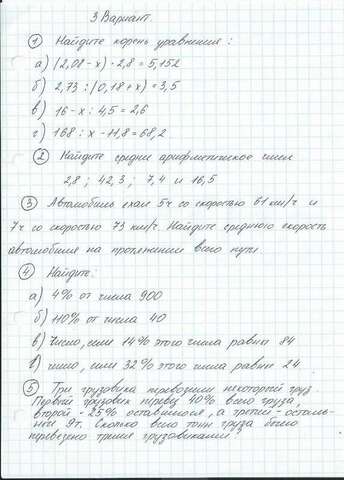 3 Вариант.
① Найдите корень уравнения:
а) (2,08 - х) · 2,8 = 5,152
б) 2,73 : (0,18 + х) = 3,5
в) 16 - х : 4,5 = 2,6
г) 168 : х - 11,8 = 68,2
② Найдите среднее арифметическое чисел
2,8 ; 42,3 ; 7,4 и 16,5
③ Автомобиль ехал 5ч со скоростью 61 км/ч и
7ч со скоростью 73 км/ч. Найдите среднюю скорость
автомобиля на протяжении всего пути
④ Найдите:
а) 4% от числа 900
б) 110% от числа 40
в) Число, если 14% этого числа равны 84
г) число, если 32% этого числа равны 24
⑤ Три грузовика перевозили некоторый груз.
Первый грузовик перевёз 40% всего груза,
второй - 25% оставшегося, а третий - осталь-
ные 9т. Сколько всего тонн груза было
перевезено тремя грузовиками?